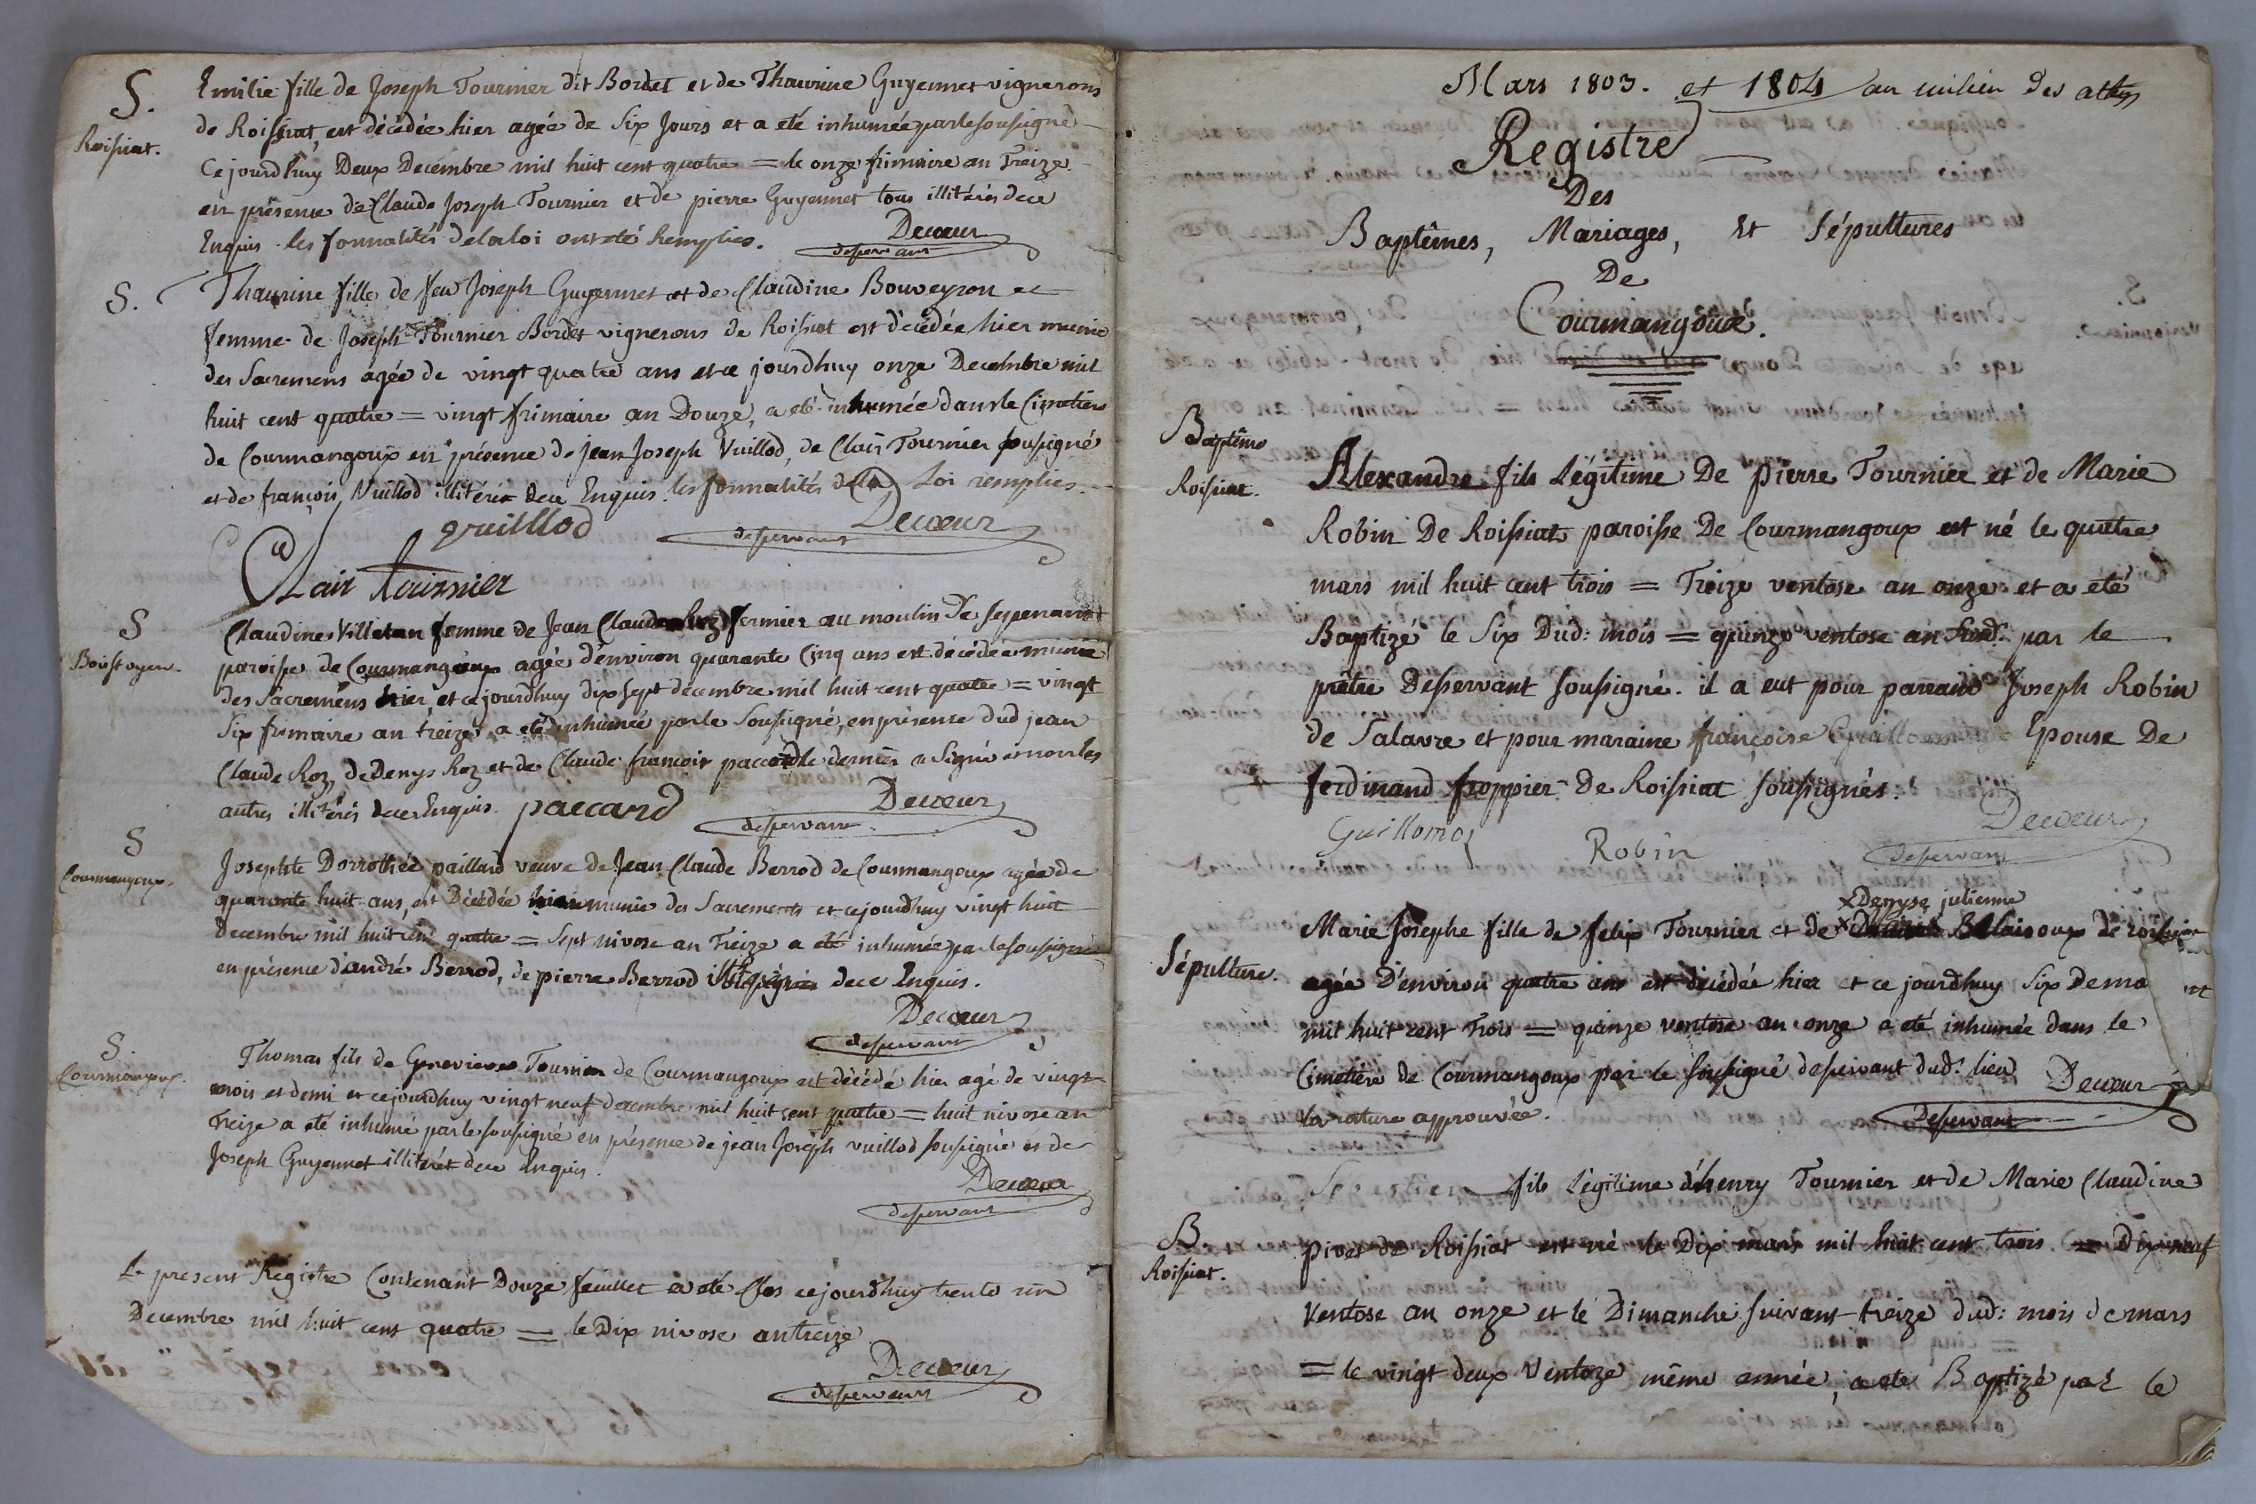 S.
Roissiat.
Emilie fille de Joseph Tournier dit Bordet et de Thaurine Guyennet vignerons
de Roissiat, est décédée hier agée de Six Jours et a eté inhumée par le soussigné
Ce jourdhuy Deux Decembre mil huit cent quatre = le onze frimaire an Treize
en présence de Claude Joseph Tournier et de pierre Guyennet tous illitérés dece
Enquis. les formalités delaloi ont eté Remplies.
Decœur
desservant
S.
Thaurine fille de feu Joseph Guyennet et de Claudine Bouveyron et
femme de Joseph Tournier Bordet vignerons de Roissiat est décédée hier munie
des Sacremens agée de vingt quatre ans et ce jourdhuy onze Decembre mil
huit cent quatre = vingt frimaire an Douze, a eté inhumée dans le Cimetiere
de Courmangoux en présence de jean Joseph Vuillod, de Clair Tournier soussigné
et de françois Vuillod illitérés dece Enquis les formalités dela Loi remplies.
vuillod
Decœur
desservant
Clair tournier
S
Boisfoyen.
Claudine Villetan femme de Jean Claude Roz fermier au moulin de
paroisse de Courmangoux agée d'environ quarante Cinq ans est décédée munie
des Sacremens hier, et cejourdhuy dix sept décembre mil huit cent quatre = vingt
Six frimaire an treize a eté inhumée parle Soussigné, en présence dud jean
Claude Roz, de Denys Roz et de Claude françois paccard le dernier a Signé et non les
autres illitérés dece Enquis. paccard
Decœur
desservant.
S
Courmangoux.
Josephte Dorrothée paillard veuve de Jean Claude Berrod de Courmangoux agée de
quarante huit ans, est Décédée hier munie des Sacrements et cejourdhuy vingt huit
Decembre mil huit cent quatre = Sept nivose an Treize a eté inhumée par le soussigné
en présence d'andré Berrod, de pierre Berrod dece Enquis.
Decœur
desservant
S.
Courmangoux.
Thomas fils de Genevieve Tournier de Courmangoux est décédé hier agé de vingt
mois et demi et cejourdhuy vingt neuf decembre mil huit cent quatre = huit nivose an
Treize a eté inhumé par le soussigné en présence de jean Joseph vuillod soussigné et de
Joseph Guyennet illitéret dece Enquis.
Decœur
desservant
Le present Registre Contenant Douze feuillet a eté Clos cejourdhuy trente un
Decembre mil huit cent quatre = le Dix nivose an treize
Decœur
desservant
Mars 1803. et 1804 au milieu des actes
Registre
Des
Baptêmes, Mariages, Et Sépultures
De
Courmangoux.
Baptême
Roissiat.
Alexandre fils Légitime De pierre Tournier et de Marie
Robin De Roissiat paroisse De Courmangoux est né le quatre
mars mil huit cent trois = Treize ventose an onze et a eté
Baptizé le Six Dud: mois = quinze ventose an Susd. par le
prêtre Desservant soussigné. il a eut pour parrain Joseph Robin
de Salavre et pour maraine françoise Epouse De
ferdinand froppier De Roissiat soussignés.
Guillomo
Robin
Decœur
desservant
Sépulture.
x Denyse julienne
Marie Josephe fille de felix Tournier et de x Blaisoux de roissiat
agée D'environ quatre ans est décédée hier et ce jourdhuy Six De
mil huit cent Trois = quinze ventose an onze a eté inhumée dans le
Cimetiere de Courmangoux par le soussigné desservant dud. lieu
la rature approuvée.
Decœur
desservant
B.
Roissiat.
Sepastien fils Légitime d'henry Tournier et de Marie Claudine
pivet de Roissiat est né le Dix mars mil huit cent trois = Dix neuf
Ventose an onze et le Dimanche suivant treize dud: mois de mars
= le vingt deux Ventoze même année, a eté Baptizé par le